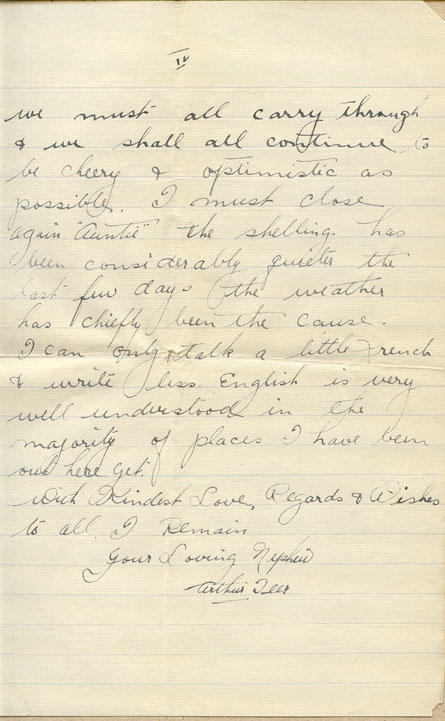 IV
we must all carry through
& we shall all continue to
be cheery & optimistic as
possible. I must close
again "Auntie" the shelling has
been considerably quieter the
last few days the weather
has chiefly been the cause.
I can only talk a little French
& write less. English is very
well understood in the
majority of places I have been
out here yet.
With Kindest Love, Regards & Wishes
to all. I Remain
Your Loving Nephew
Arthur